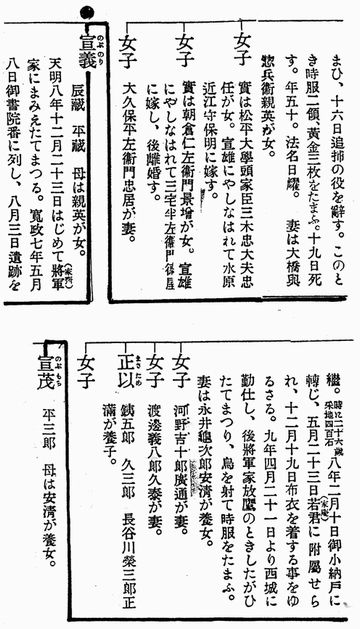 まひ、十六日追捕の役を辭す。このと
き時服二領、黄金三枚をたまふ。十九日死
す。年五十。法名日耀。 妻は大橋與
惣兵衞親英が女。
女子
實は松平大學頭家臣三木忠大夫忠
任が女。宣雄にやしなはれて水原
近江守保明に嫁す。
女子
實は朝倉仁左衞門景增が女。宣雄
にやしなはれて三宅半左衞門
に嫁し、後離婚す。
女子
大久保平左衞門忠居が妻。
宣義
のぶのり
辰藏 平藏 母は親英が女。
天明八年十二月二十三日はじめて將軍
家にまみえたてまつる。寬政七年五月
(家齊)
八日御書院番に列し、八月三日遺跡を
繼。時に二十六歲 采地四百石 八年二月十日御小納戶に
轉じ、五月二十三日若君に附屬せら
(家慶)
れ、十二月十九日布衣を着する事をゆ
るさる。九年四月二十一日より西城に
勤仕し、後將軍家放鷹のときしたがひ
たてまつり、鳥を射て時服をたまふ。
妻は永井龜次郎安淸が養女。
女子
河野吉十郎廣通が妻。
女子
渡邊義八郎久泰が妻。
正以
まさため
銕五郎 久三郎 長谷川榮三郎正
滿が養子。
女子
宣茂
のぶもち
平三郎 母は安淸が養女。